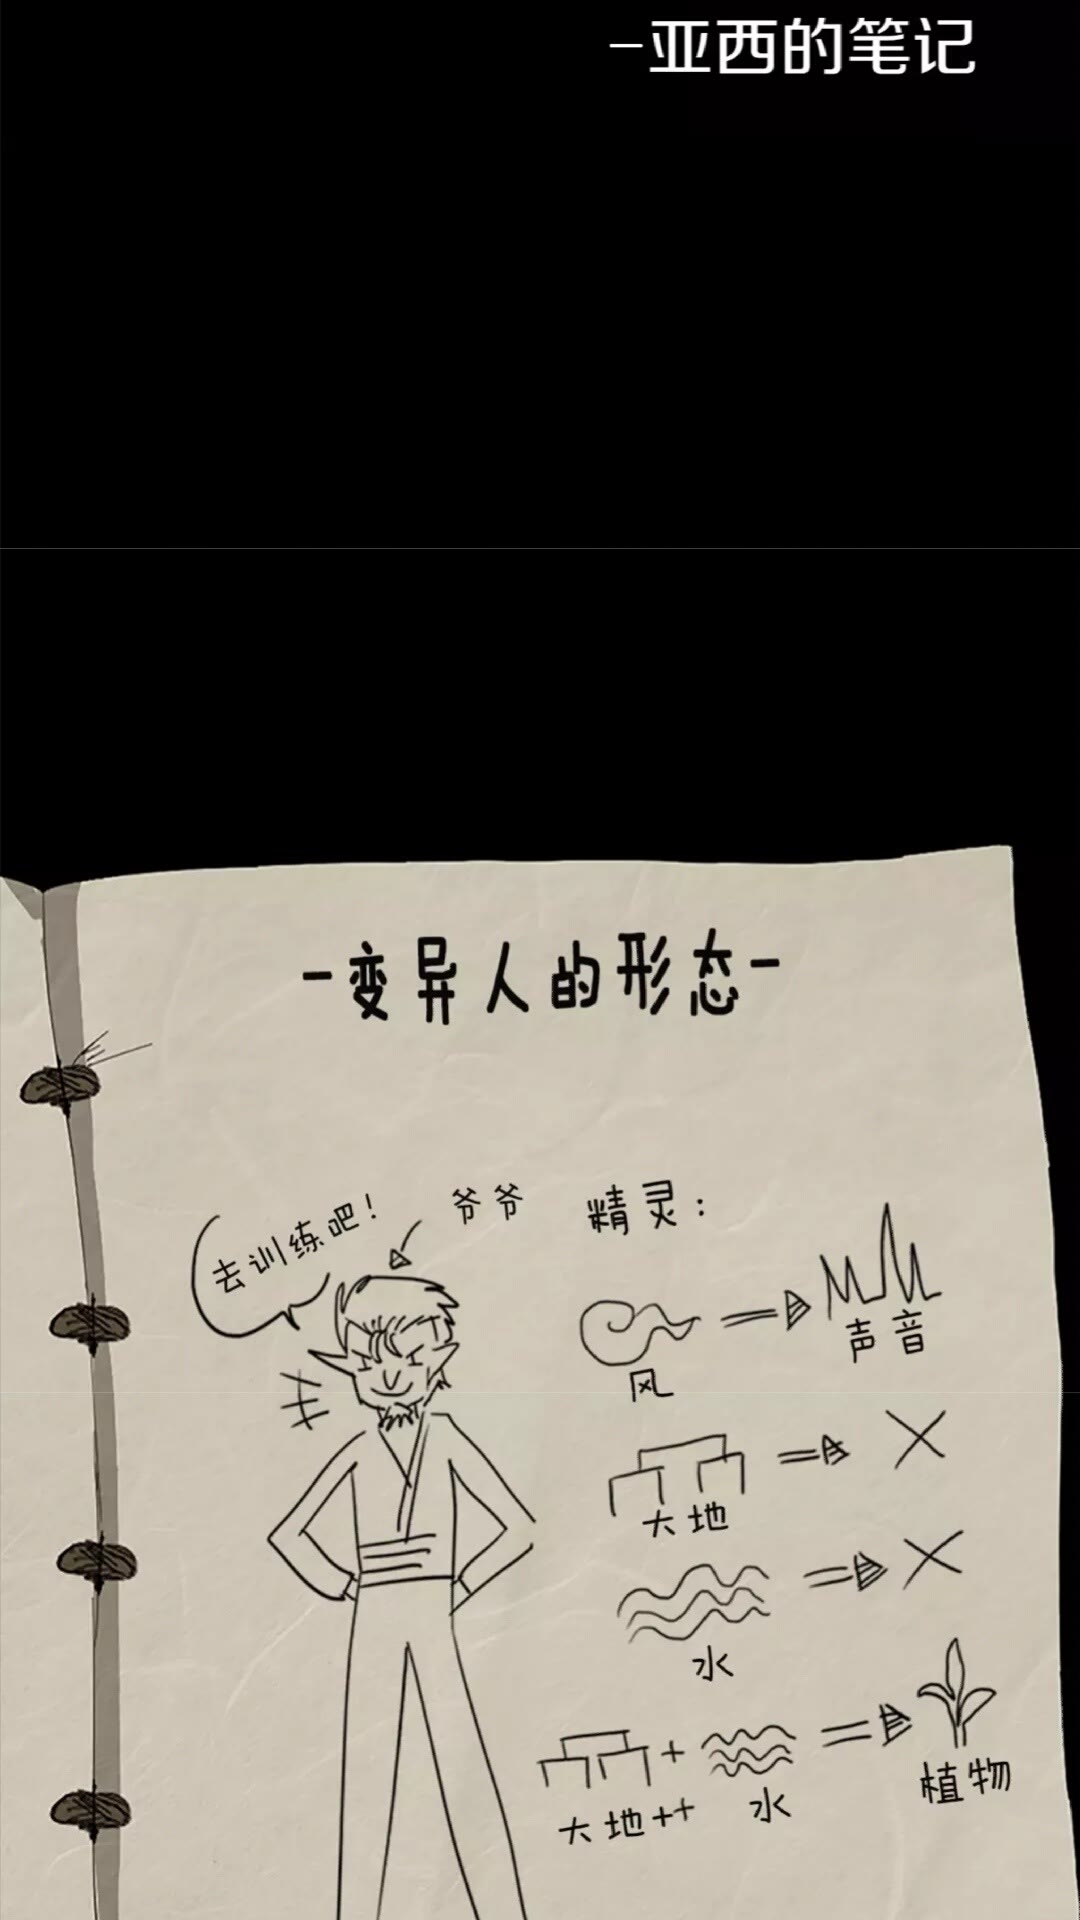 -亚西的笔记
-变异人的形态-
去训练吧！
爷爷
精灵：
风
声音
大地
水
大地++
水
植物